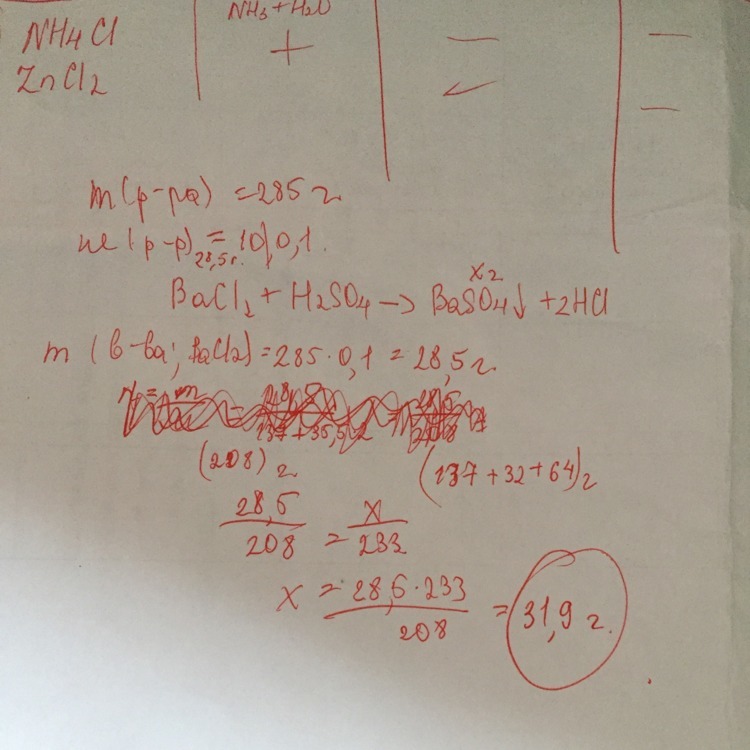 NH3 + H2O
NH4Cl + — —
ZnCl2 ✓ —
m(р-ра) = 285 г.
(р-р) = 10% 0,1.
28,5 г.
x г
BaCl2 + H2SO4 → BaSO4↓ + 2HCl
m (в-ва; BaCl2) = 285 · 0,1 = 28,5 г.
(208) г (137 + 32 + 64) г
28,5 / 208 = x / 233
x = 28,5 · 233 / 208 = 31,9 г.